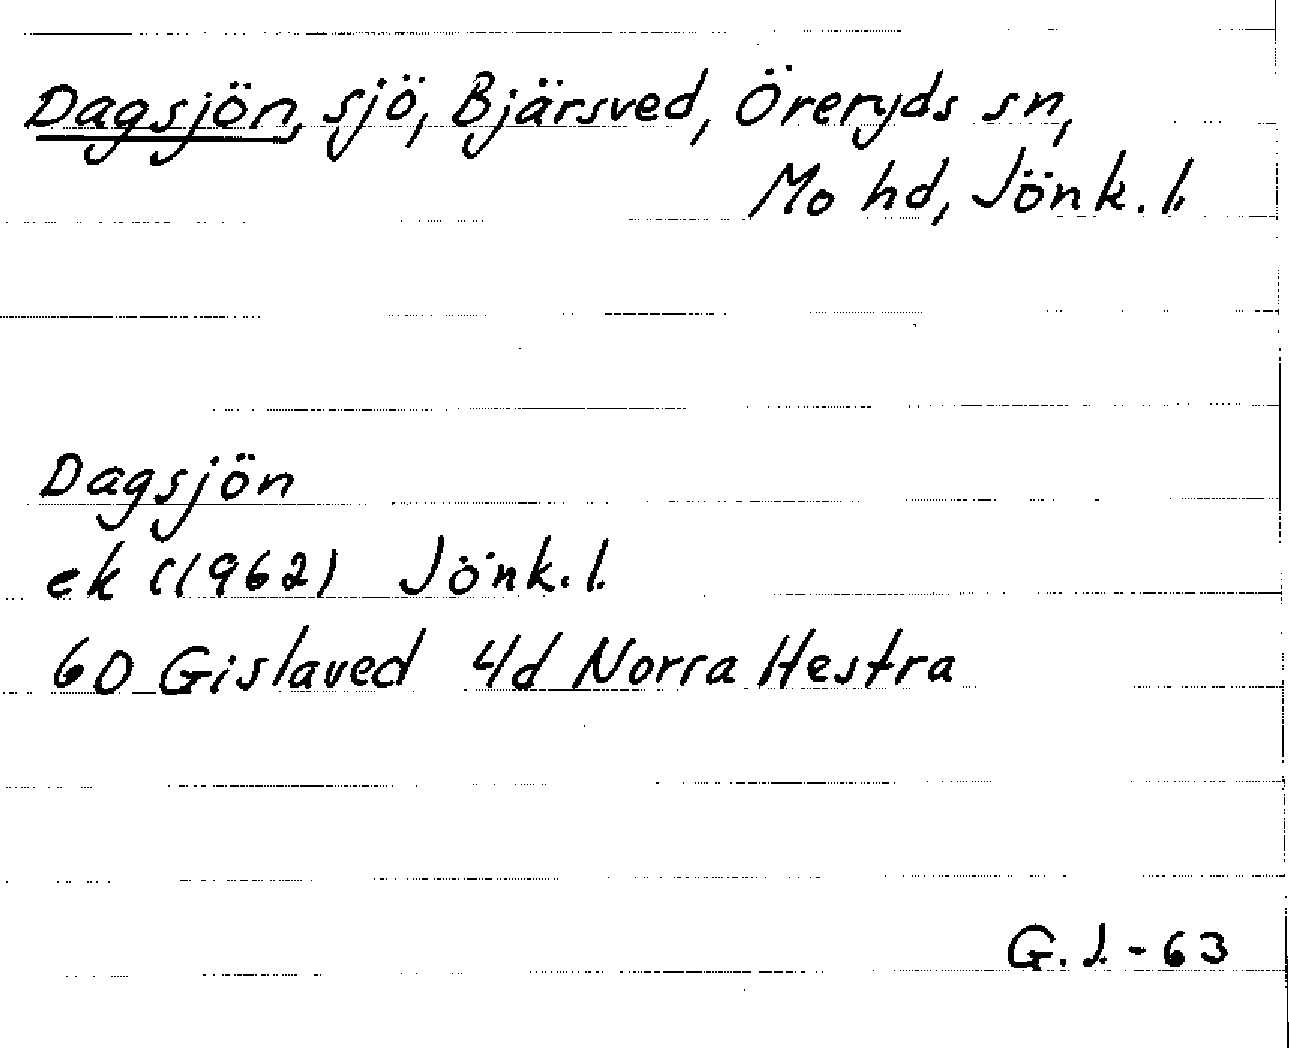 Dagsjön, sjö, Bjärsved, Öreryds sn,
Mo hd, Jönk. l.
Dagsjön
ek ((1962) Jönk. l.
6D Gislaved 4d Norra Hestra
G. J. - 63